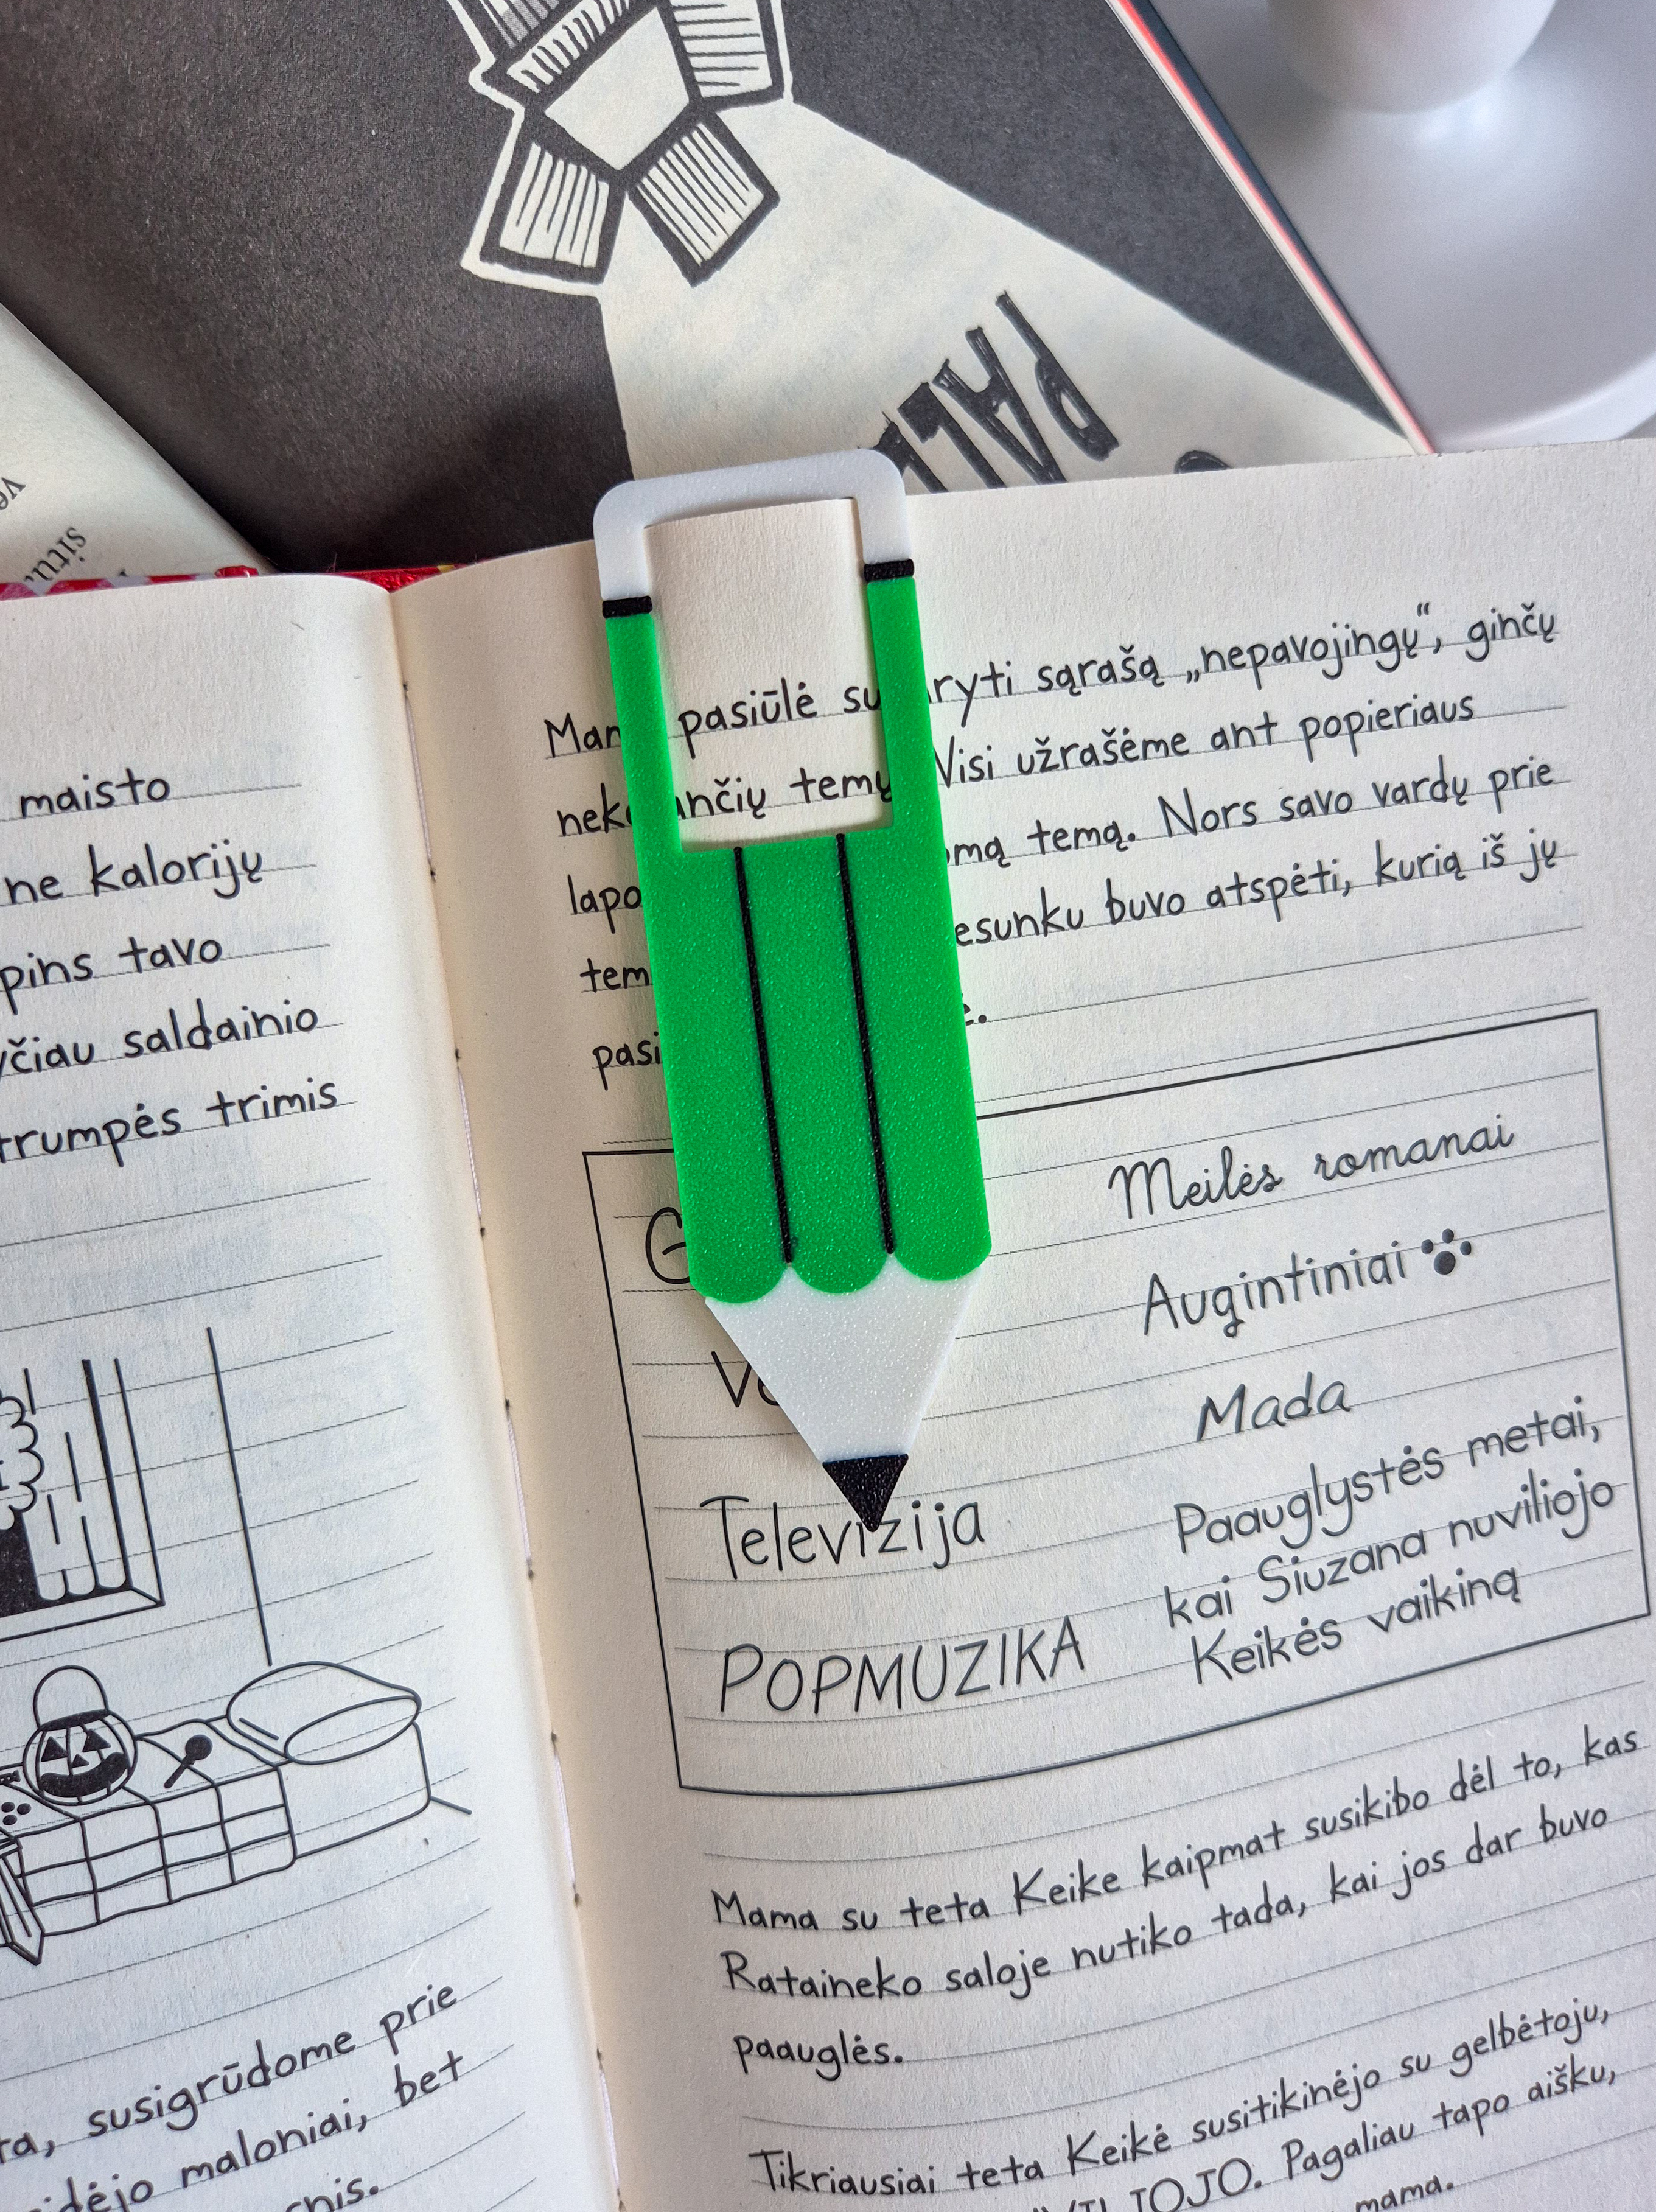 PALE
maisto
ne kalorijų
tavo
saldainio
trimis
susigrūdome prie
maloniai, bet
pasiūlė sąrašą „nepavojingų“, ginčų
temų Visi užrašėme ant popieriaus
temą. Nors savo vardų prie
buvo atspėti, kurią iš jų
Meilės romanai
Augintiniai
Mada
Televizija
Paauglystės metai,
kai Siuzana nuviliojo
Keikės vaikiną
POPMUZIKA
Mama su teta Keike kaipmat susikibo dėl to, kas
Rataineko saloje nutiko tada, kai jos dar buvo
paauglės.
Tikriausiai teta Keikė susitikinėjo su gelbėtoju,
Pagaliau tapo aišku,
mama.